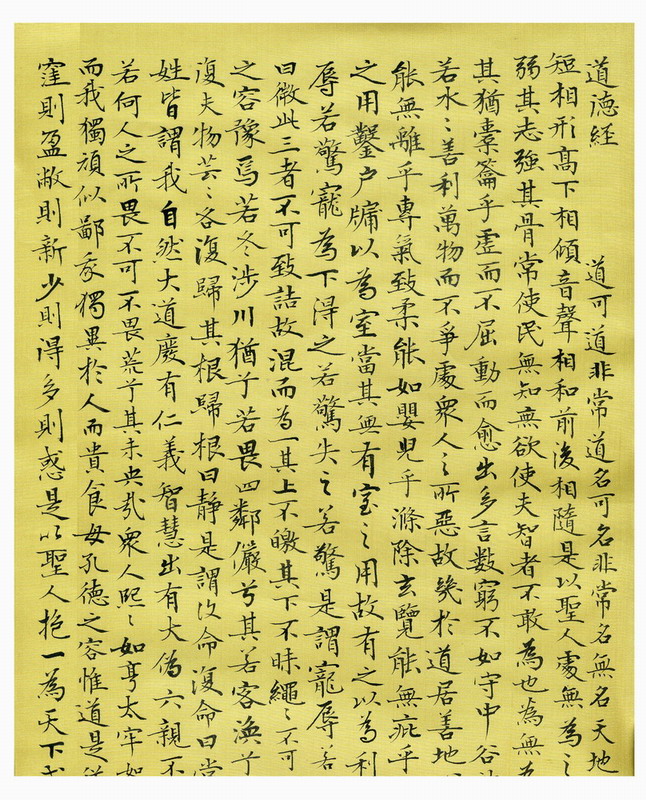 道德經 道可道非常道名可名非常名無名天地
短相形高下相傾音聲相和前後相隨是以聖人處無為之
弱其志強其骨常使民無知無欲使夫智者不敢為也為無
其猶橐籥乎虛而不屈動而愈出多言數窮不如守中谷
若水〻善利萬物而不爭處衆人之所惡故幾於道居善地
能無離乎專氣致柔能如嬰兒乎滌除玄覽能無疵乎
之用鑿户牖以為室當其無有室之用故有之以為利
辱若驚寵為下得之若驚失之若驚是謂寵辱若
曰微此三者不可致詰故混而為一其上不皦其下不昧繩〻不可
之容豫焉若冬涉川猶兮若畏四鄰儼兮其若客渙兮
復夫物芸〻各復歸其根歸根曰靜是謂復命復命曰常
姓皆謂我自然大道廢有仁義智慧出有大偽六親不
若何人之所畏不可不畏荒兮其未央哉衆人熙〻如享太牢如
而我獨頑似鄙我獨異於人而貴食母孔德之容惟道是
窪則盈敝則新少則得多則惑是以聖人抱一為天下